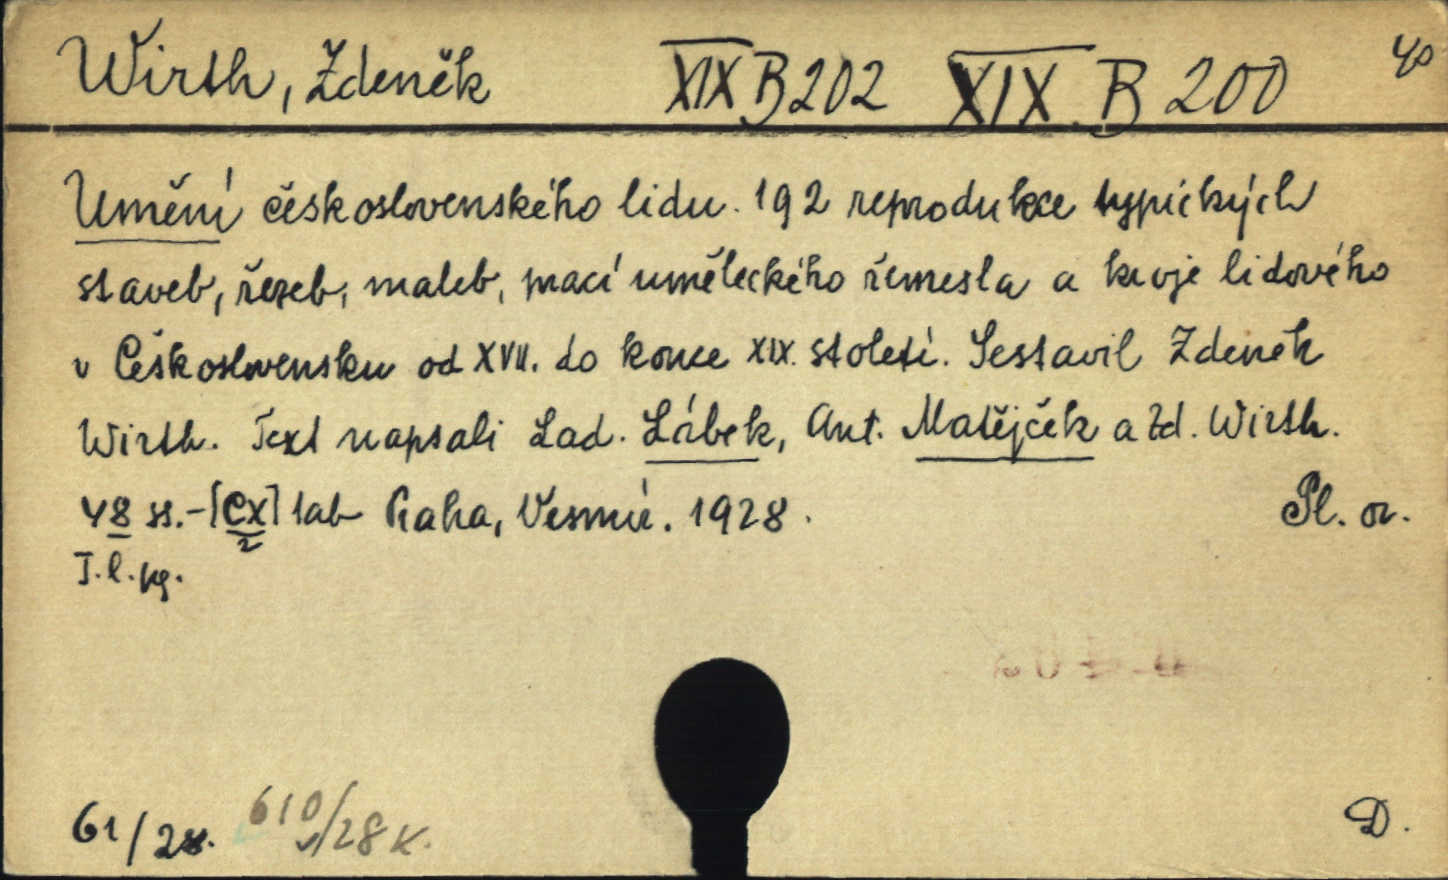 Wirth, Zdeněk XIX B 202 XIX. B 200 4°
Umění československého lidu. 192 reprodukce typických
staveb, řezeb, maleb, prací uměleckého řemesla a kroje lidového
v Československu od XVII. do konce XIX. století. Sestavil Zdeněk
Wirth. Text napsali Lad. Lábek, Ant. Matějček a Zd. Wirth.
48 ss. - [CX] tab Praha, Vesmír. 1928. Pl. or.
2
I. l. kg.
61/28. 610/28 K.
D.